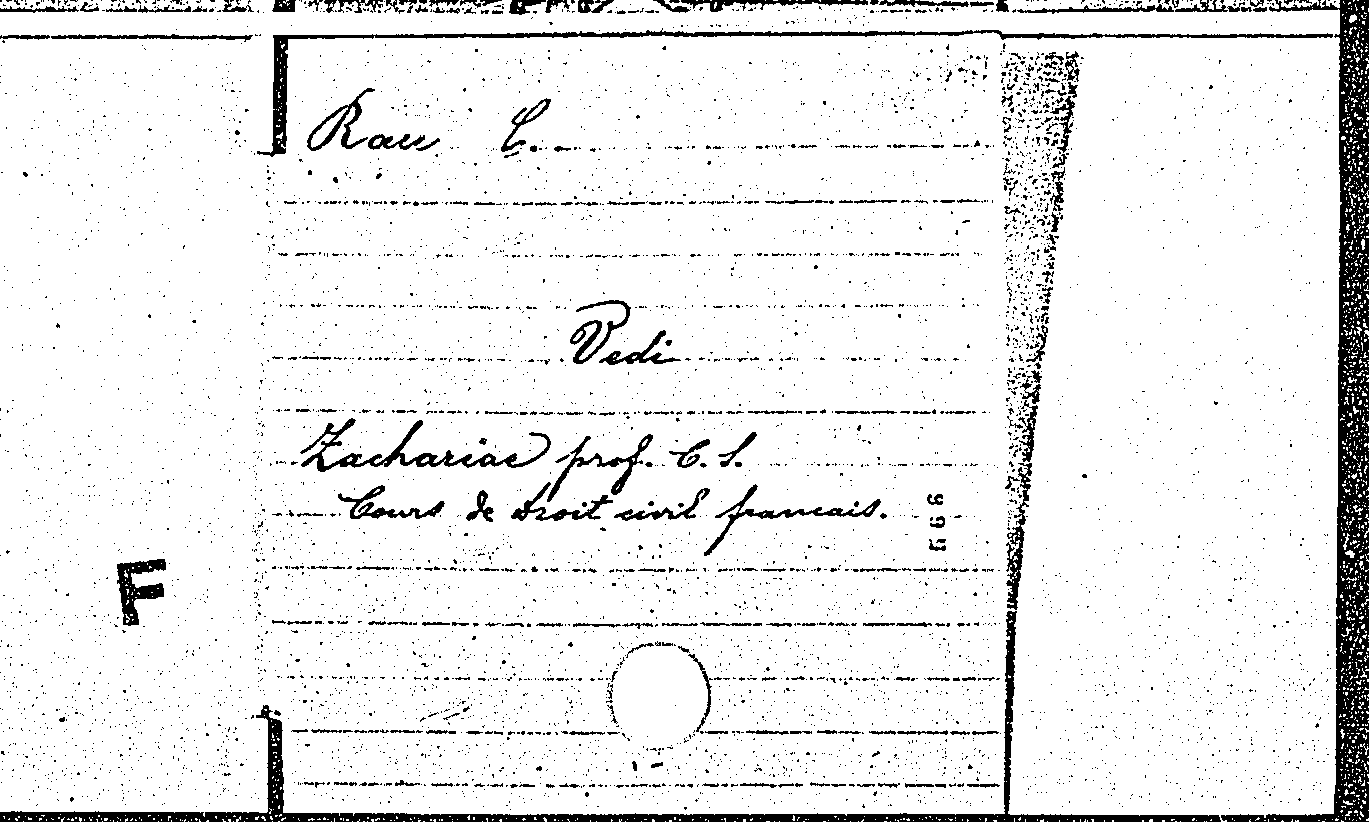 Rau C.
Vedi
Zachariae prof. C. S.
Cours de droit civil francais.
F